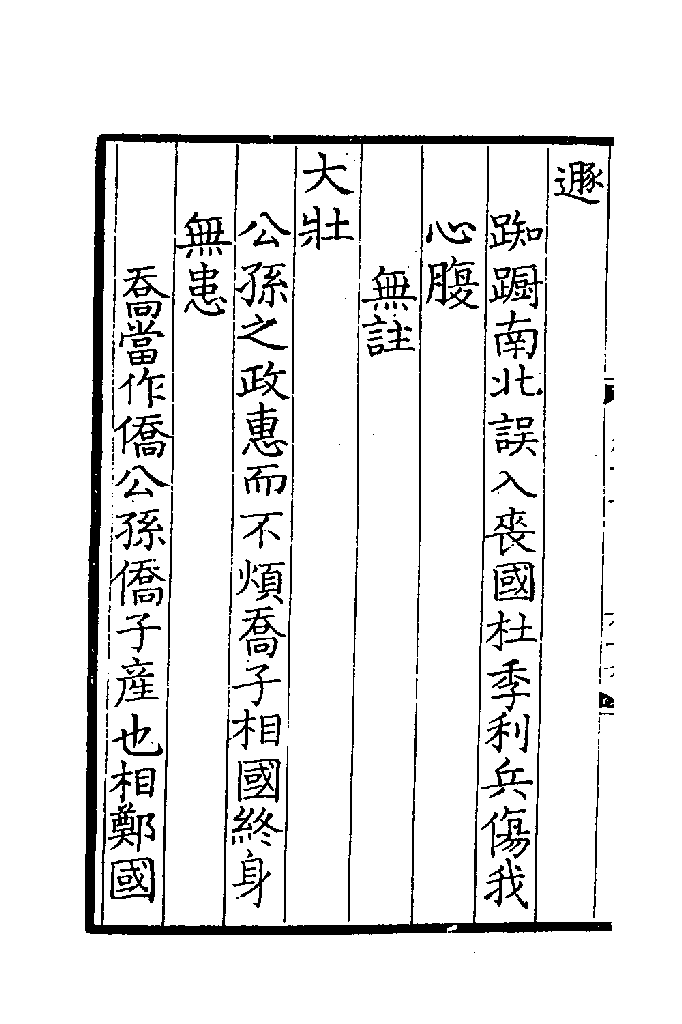 遯
踟蹰南北誤入喪國杜季利兵傷我
心腹
無註
大壯
公孫之政惠而不煩喬子相國終身
無患
喬當作僑公孫僑子產也相鄭國